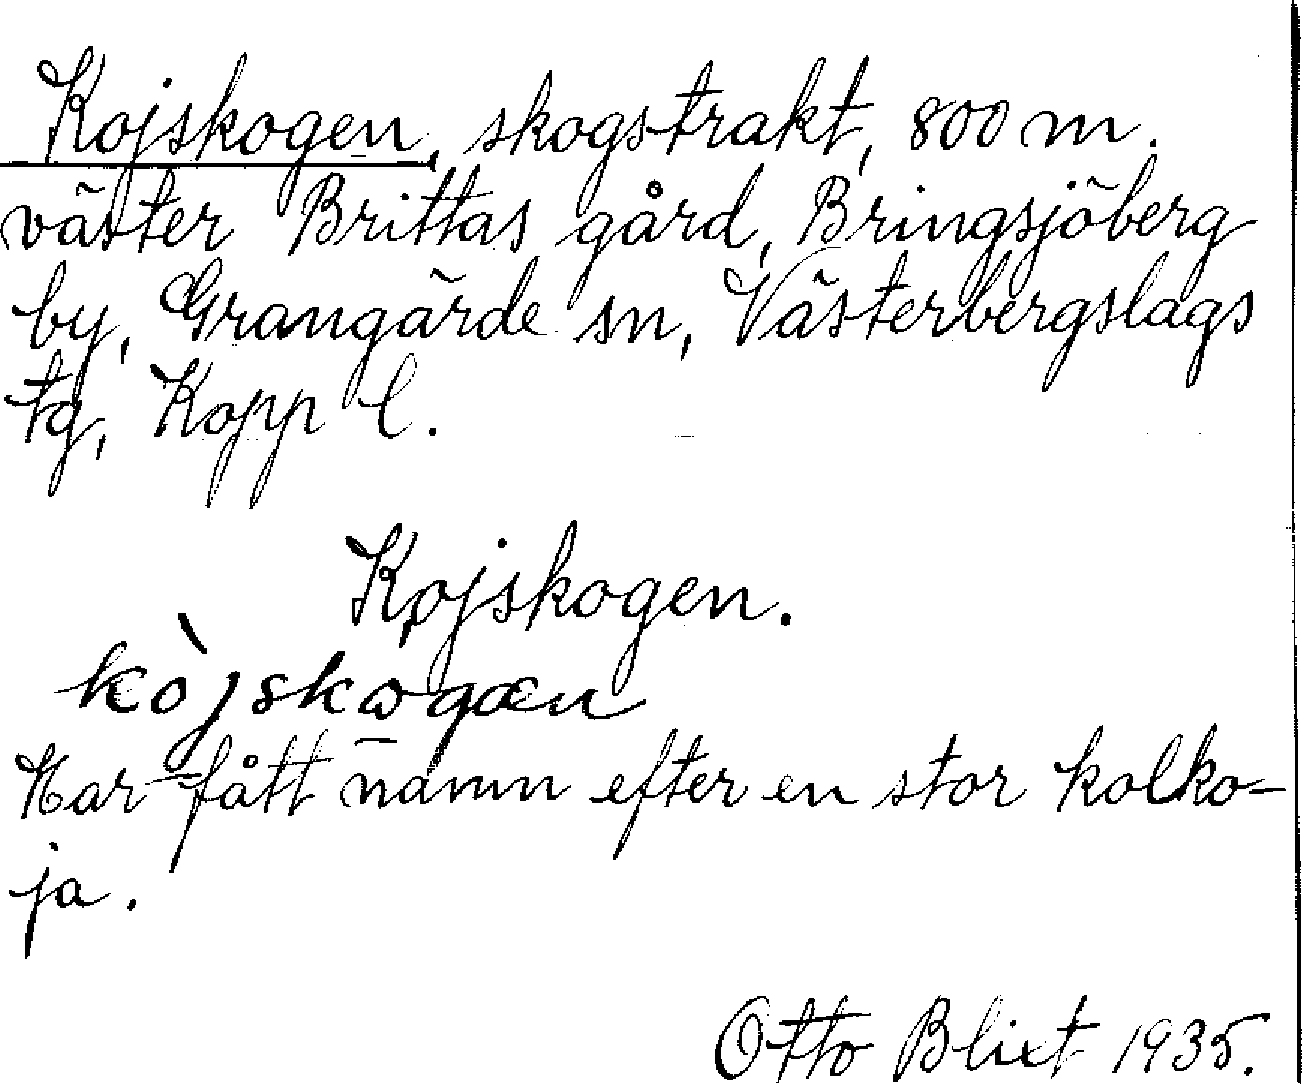 Kojskogen, skogstrakt, 800 m.
väster Brittas gård, Bringsjöberg
by, Grangärde sn, Västerbergslags
tg, Kopp l.
Kojskogen.
kòjskωgæn
Har fått namn efter en stor kolko-
ja.
Otto Blixt 1935.